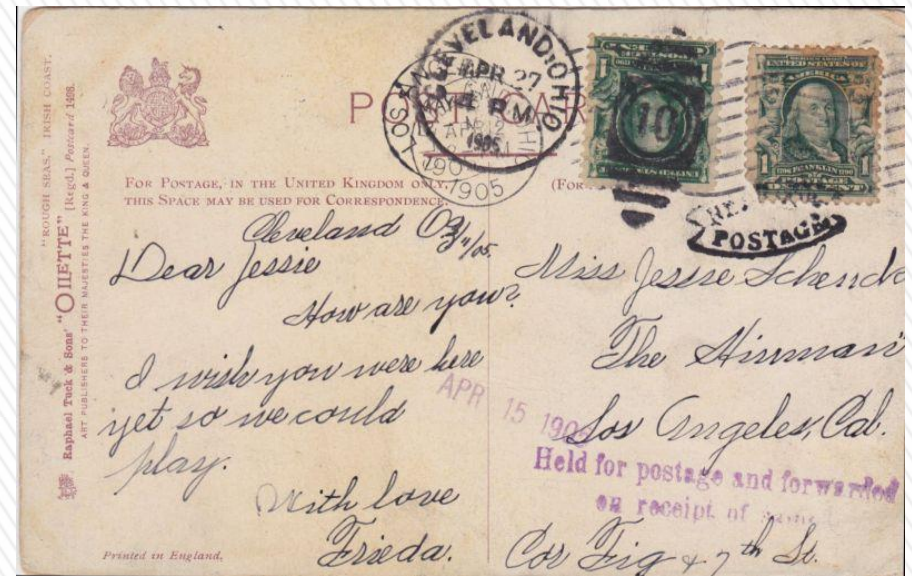 "ROUGH SEAS," IRISH COAST.
Raphael Tuck & Sons' "OILETTE" [Regd.] Postcard 1498.
ART PUBLISHERS TO THEIR MAJESTIES THE KING & QUEEN.
POST CAR
CLEVELAND, OHIO.
APR 27
4 P.M.
1905
LOS AN
1905
10
1
UNITED STATES OF
AMERICA
FRANKLIN
1
POSTAGE
FOR POSTAGE, IN THE UNITED KINGDOM ONLY,
THIS SPACE MAY BE USED FOR CORRESPONDENCE.
(FOR
Cleveland O 3/11/05.
Dear Jessie
How are you?
I wish you were here
yet so we could
play.
With love
Frieda.
Miss Jessie Schenck
The Hinman
Los Angeles, Cal.
Cor Fig & 7th St.
APR 15 1905
Held for postage and forwarded
on receipt of same
Printed in England.